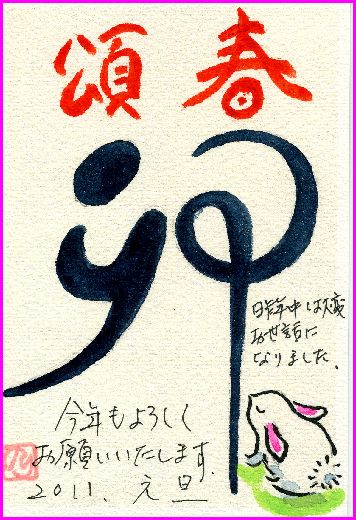 頌春
卯
昨年中は大変
お世話に
なりました.
今年もよろしく
お願いいたします.
2011. 元旦